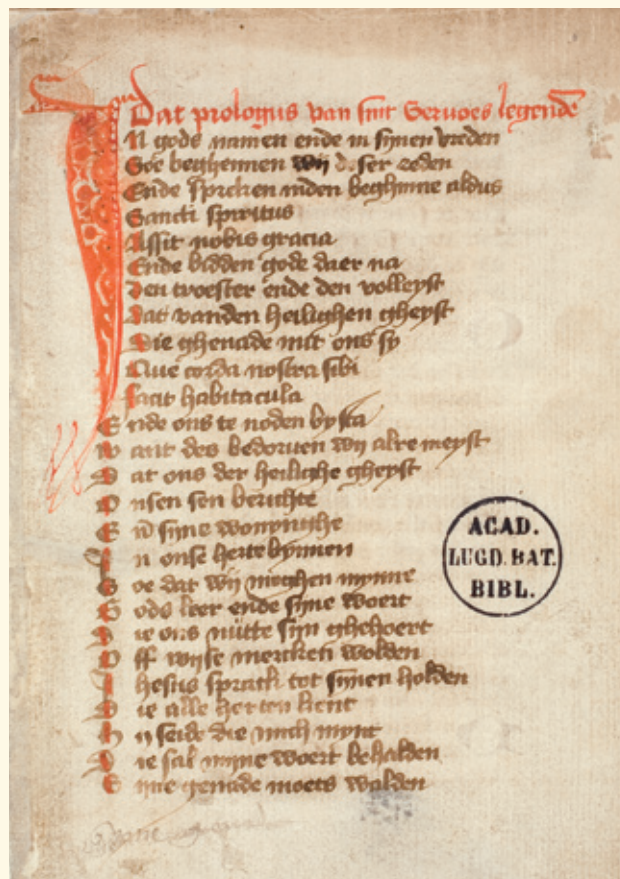 Dat prologus van sint Servoes legende
IN gods namen ende in synen vreden
Soe beghennen wij deser reden
Ende spreken inden beghinne aldus
Sancti spiritus
Assit nobis gracia
Ende bidden gode daer na
Den troester ende den volleyst
Dat vanden heilighen gheyst
Die ghenade mit ons sy
Que corda nostra sibi
Facit habitacula
Ende ons te noden bysta
Want des bedorven wij alre meyst
Dat ons der heilighe gheyst
Onsen sen berichte
En syne wonynghe
In onse herte bynnen
Soe dat wij moghen mynne
Gods leer ende syne woert
Die ons nutte syn ghehoert
Off wijse mercken wolden
Ihesus sprack tot synen holden
Die alle herten kent
Hij seide die mich mynt
Die sal myne woert behalden
Syne genade moets walden
ACAD.
LUGD. BAT.
BIBL.